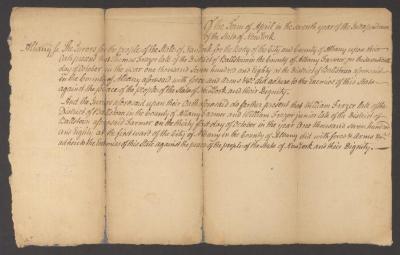 Of the Term of April in the seventh year of the Independence
of the State of New York
Albany ss. The Jurors for the people of the State of New York for the Body of the City and County of Albany upon their
Oath present that Thomas Frazer late of the District of Ballstown in the County of Albany Farmer on the
day of October in the year one thousand seven hundred and eighty at the District of Ballstown aforesaid
in the County of Albany aforesaid with force and Arms &c. did adhere to the Enemies of this State
against the peace of the people of the State of New York and their Dignity.
And the Jurors aforesaid upon their Oath aforesaid do further present that William Frazer late of the
District of Ballstown in the County of Albany Farmer and William Frazer junior late of the District of
Ballstown aforesaid Farmer on the thirty first day of October in the year one thousand seven hundred
and eighty at the first ward of the City of Albany in the County of Albany did with force & Arms &c.
adhere to the Enemies of this State against the peace of the people of the State of New York and their Dignity